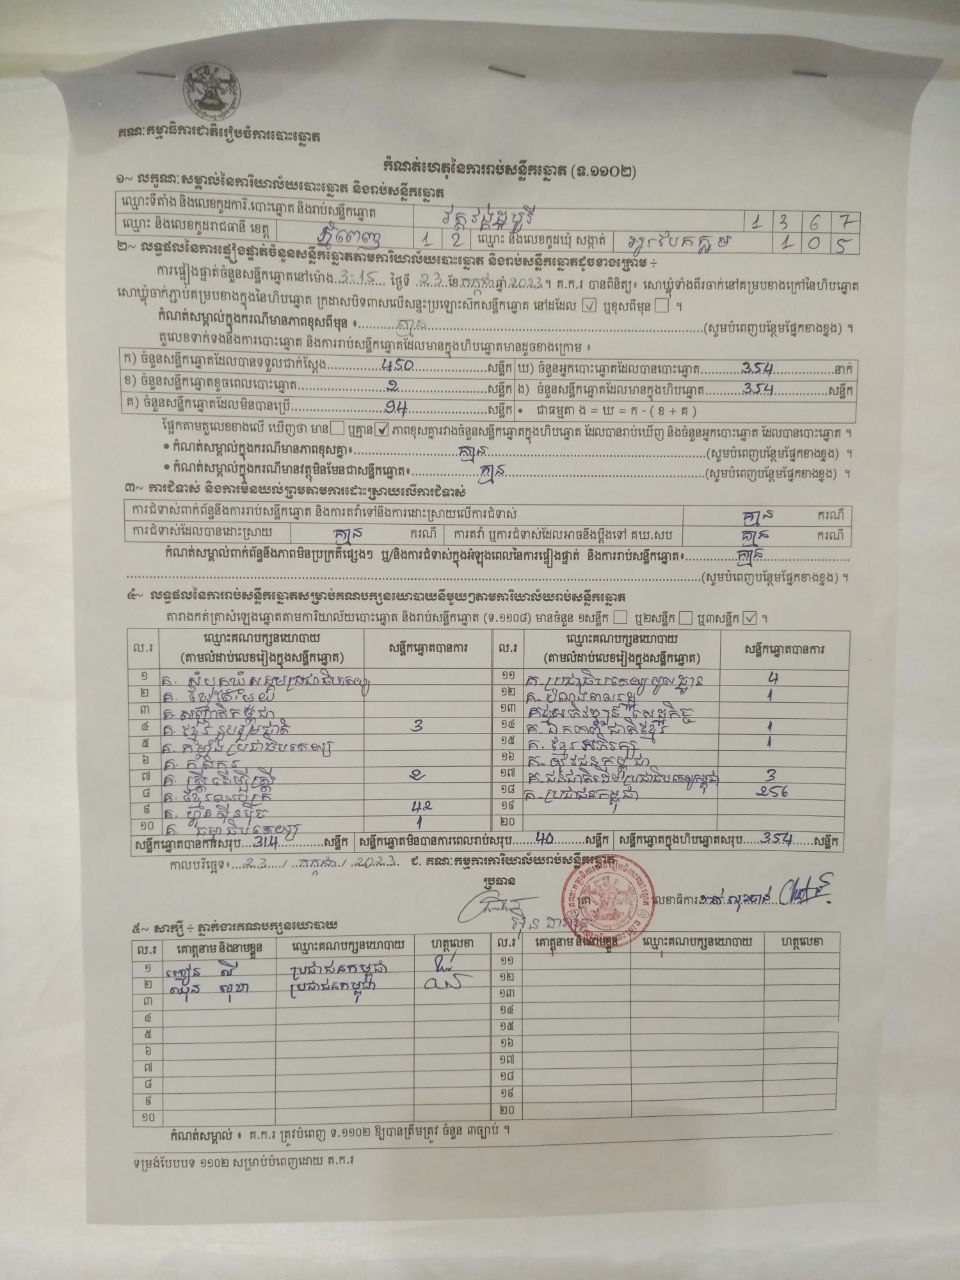 គណៈកម្មាធិការជាតិរៀបចំការបោះឆ្នោត
កំណត់ហេតុនៃការរាប់សន្លឹកឆ្នោត (ទ.១១០២)
១~ លក្ខណៈសម្គាល់នៃការិយាល័យបោះឆ្នោត និងរាប់សន្លឹកឆ្នោត
ឈ្មោះទីតាំង និងលេខកូដការិ.បោះឆ្នោត និងរាប់សន្លឹកឆ្នោត 1 3 6 7
ឈ្មោះ និងលេខកូដរាជធានី ខេត្ត ភ្នំពេញ 1 2 ឈ្មោះ និងលេខកូដឃុំ សង្កាត់ អូរបែកក្អម 1 0 5
២~ លទ្ធផលនៃការផ្ទៀងផ្ទាត់ចំនួនសន្លឹកឆ្នោតតាមការិយាល័យបោះឆ្នោត និងរាប់សន្លឹកឆ្នោតដូចខាងក្រោម ÷
ការផ្ទៀងផ្ទាត់ចំនួនសន្លឹកឆ្នោតនៅម៉ោង 3:15 ថ្ងៃទី 23 ខែ កក្កដា ឆ្នាំ 2023 ។ គ.ក.រ បានពិនិត្យ៖ សោឃ្លុំទាំងពីរចាក់នៅគម្របខាងក្រៅនៃហិបឆ្នោត
សោឃ្លុំចាក់ភ្ជាប់គម្របខាងក្នុងនៃហិបឆ្នោត ក្រដាសបិទពាសលើសន្ទះប្រឡោះស៊កសន្លឹកឆ្នោត នៅដដែល ☑ ឬខុសពីមុន ☐ ។
កំណត់សម្គាល់ក្នុងករណីមានភាពខុសពីមុន ៖ គ្មាន (សូមបំពេញបន្ថែមផ្នែកខាងខ្នង) ។
តួលេខទាក់ទងនឹងការបោះឆ្នោត និងការរាប់សន្លឹកឆ្នោតដែលមានក្នុងហិបឆ្នោតមានដូចខាងក្រោម ៖
ក) ចំនួនសន្លឹកឆ្នោតដែលបានទទួលជាក់ស្តែង 450 សន្លឹក ឃ) ចំនួនអ្នកបោះឆ្នោតដែលបានបោះឆ្នោត 354 នាក់
ខ) ចំនួនសន្លឹកឆ្នោតខូចពេលបោះឆ្នោត 2 សន្លឹក ង) ចំនួនសន្លឹកឆ្នោតដែលមានក្នុងហិបឆ្នោត 354 សន្លឹក
គ) ចំនួនសន្លឹកឆ្នោតដែលមិនបានប្រើ 94 សន្លឹក • ជាធម្មតា ង = ឃ = ក - ( ខ + គ )
ផ្អែកតាមតួលេខខាងលើ ឃើញថា មាន ☐ ឬគ្មាន ☑ ភាពខុសគ្នារវាងចំនួនសន្លឹកឆ្នោតក្នុងហិបឆ្នោត ដែលបានរាប់ឃើញ និងចំនួនអ្នកបោះឆ្នោត ដែលបានបោះឆ្នោត ។
• កំណត់សម្គាល់ក្នុងករណីមានភាពខុសគ្នា៖ គ្មាន (សូមបំពេញបន្ថែមផ្នែកខាងខ្នង) ។
• កំណត់សម្គាល់ក្នុងករណីមានវត្ថុមិនមែនជាសន្លឹកឆ្នោត៖ គ្មាន (សូមបំពេញបន្ថែមផ្នែកខាងខ្នង) ។
៣~ ការជំទាស់ និងការមិនយល់ព្រមតាមការដោះស្រាយលើការជំទាស់
ការជំទាស់ពាក់ព័ន្ធនឹងការរាប់សន្លឹកឆ្នោត និងការតវ៉ាទៅនឹងការដោះស្រាយលើការជំទាស់ គ្មាន ករណី
ការជំទាស់ដែលបានដោះស្រាយ គ្មាន ករណី ការតវ៉ា ឬការជំទាស់ដែលអាចនឹងប្តឹងទៅ គឃ.សប គ្មាន ករណី
កំណត់សម្គាល់ពាក់ព័ន្ធនឹងភាពមិនប្រក្រតីផ្សេងៗ ឬ/និងការជំទាស់ក្នុងអំឡុងពេលនៃការផ្ទៀងផ្ទាត់ និងការរាប់សន្លឹកឆ្នោត៖ គ្មាន
(សូមបំពេញបន្ថែមផ្នែកខាងខ្នង) ។
៤~ លទ្ធផលនៃការរាប់សន្លឹកឆ្នោតសម្រាប់គណបក្សនយោបាយនីមួយៗតាមការិយាល័យរាប់សន្លឹកឆ្នោត
តារាងកត់ត្រាសំឡេងឆ្នោតតាមការិយាល័យបោះឆ្នោត និងរាប់សន្លឹកឆ្នោត (ទ.១១០៨) មានចំនួន ១សន្លឹក ☐ ឬ២សន្លឹក ☐ ឬ៣សន្លឹក ☑ ។
ល.រ ឈ្មោះគណបក្សនយោបាយ (តាមលំដាប់លេខរៀងក្នុងសន្លឹកឆ្នោត) សន្លឹកឆ្នោតបានការ ល.រ ឈ្មោះគណបក្សនយោបាយ (តាមលំដាប់លេខរៀងក្នុងសន្លឹកឆ្នោត) សន្លឹកឆ្នោតបានការ
១ គ. សំបុកឃ្មុំសង្គមប្រជាធិបតេយ្យ ១១ គ. ប្រជាធិបតេយ្យមូលដ្ឋាន 4
២ គ. ខ្មែរតែមួយ ១២ គ. បំណងពលរដ្ឋ 1
៣ គ. សញ្ជាតិកម្ពុជា ១៣ សេដ្ឋកិច្ច
៤ គ. ខ្មែររួបរួមជាតិ 3 ១៤ គ. ឯកភាពជាតិខ្មែរ 1
៥ គ. កម្លាំងប្រជាធិបតេយ្យ ១៥ គ. ខ្មែរអភិរក្ស 1
៦ គ. កសិករ ១៦ គ. យុវជនកម្ពុជា
៧ គ. ស្ត្រីដើម្បីស្ត្រី 2 ១៧ គ. ជនជាតិដើមប្រជាធិបតេយ្យកម្ពុជា 3
៨ គ. ខ្មែរឈប់ក្រ ១៨ គ. ប្រជាជនកម្ពុជា 256
៩ គ. ហ្វ៊ុនស៊ិនប៉ិច 42 ១៩
១០ គ. ធម្មាធិបតេយ្យ 1 ២០
សន្លឹកឆ្នោតបានការសរុប 314 សន្លឹក សន្លឹកឆ្នោតមិនបានការពេលរាប់សរុប 40 សន្លឹក សន្លឹកឆ្នោតក្នុងហិបឆ្នោតសរុប 354 សន្លឹក
កាលបរិច្ឆេទ៖ 23 / កក្កដា / 2023 ជ. គណៈកម្មការការិយាល័យរាប់សន្លឹកឆ្នោត
ប្រធាន
ត្រា
លេខាធិការ
៥~ សាក្សី ÷ ភ្នាក់ងារគណបក្សនយោបាយ
ល.រ គោត្តនាម និងនាមខ្លួន ឈ្មោះគណបក្សនយោបាយ ហត្ថលេខា ល.រ គោត្តនាម និងនាមខ្លួន ឈ្មោះគណបក្សនយោបាយ ហត្ថលេខា
១ ប្រជាជនកម្ពុជា ១១
២ ប្រជាជនកម្ពុជា ១២
៣ ១៣
៤ ១៤
៥ ១៥
៦ ១៦
៧ ១៧
៨ ១៨
៩ ១៩
១០ ២០
កំណត់សម្គាល់ ៖ គ.ក.រ ត្រូវបំពេញ ទ.១១០២ ឱ្យបានត្រឹមត្រូវ ចំនួន ៣ច្បាប់ ។
ទម្រង់បែបបទ ១១០២ សម្រាប់បំពេញដោយ គ.ក.រ